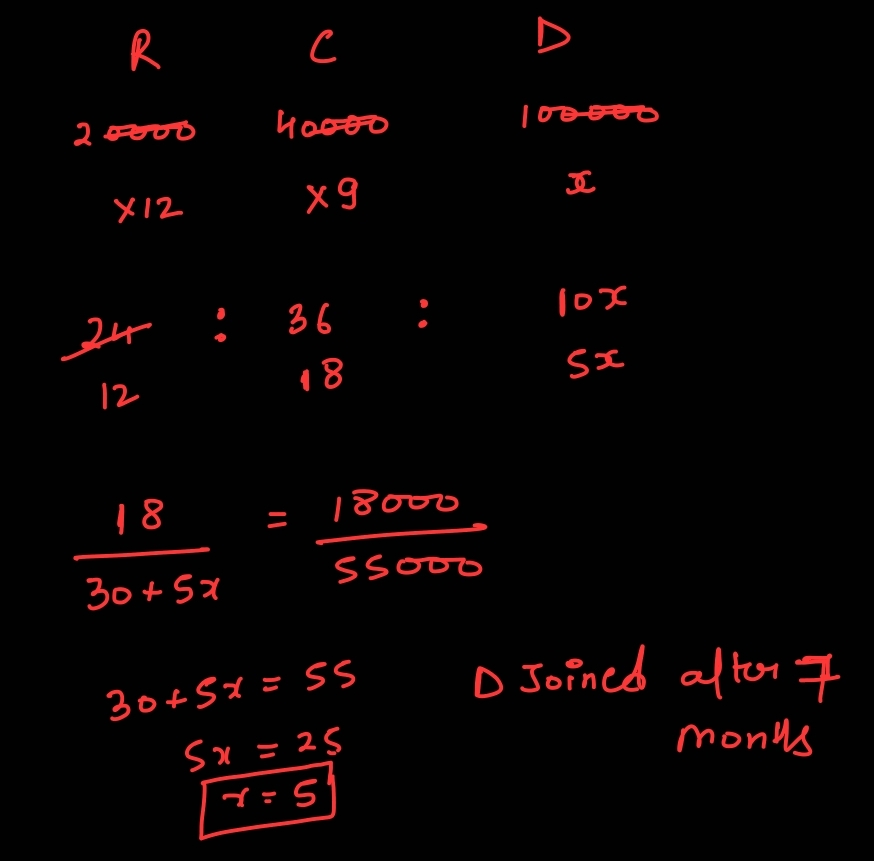 R C D
20000 40000 100000
×12 ×9 x
24 : 36 : 10x
12 18 5x
18 = 18000
30+5x 55000
30+5x = 55 D Joined after 7
5x = 25 months
x = 5